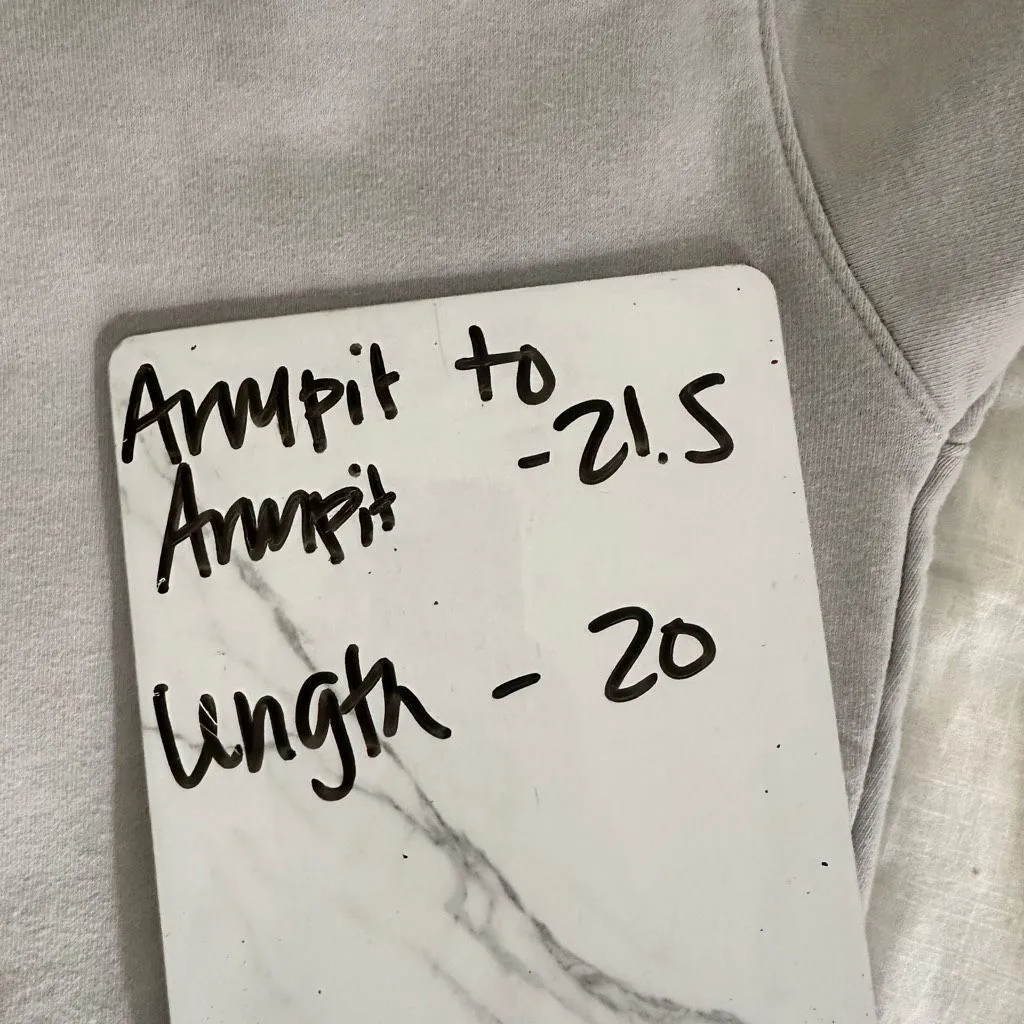 Armpit to
Armpit - 21.5
Length - 20